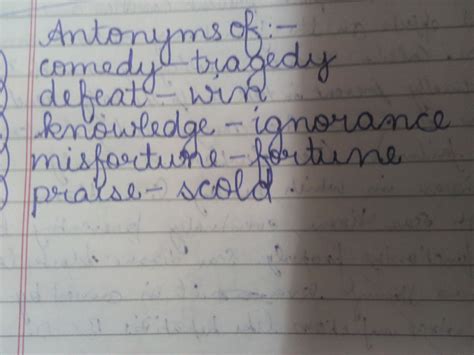 Antonyms of :-
) comedy - tragedy
) defeat - win
) knowledge - ignorance
) misfortune - fortune
) praise - scold .